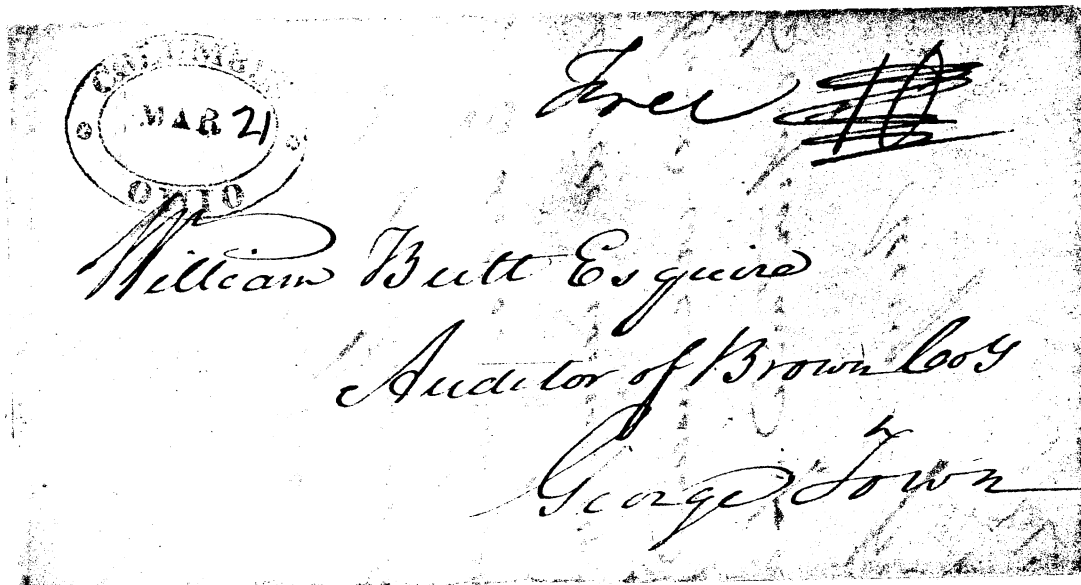 COLUMBUS
MAR 21
OHIO
Free 10
William Butt Esquire
Auditor of Brown Coy
George Town